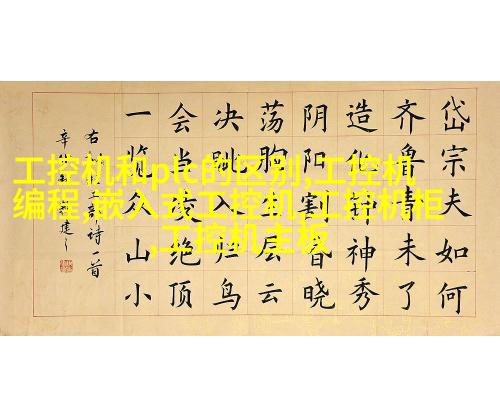 工控机和plc的区别,工控机
编程,嵌入式工控机,工控机柜
,工控机主板
岱宗夫如何
齐鲁青未了
造化钟神秀
阴阳割昏晓
荡胸生层云
决眦入归鸟
会当凌绝顶
一览众山小
右 诗一首
辛 建